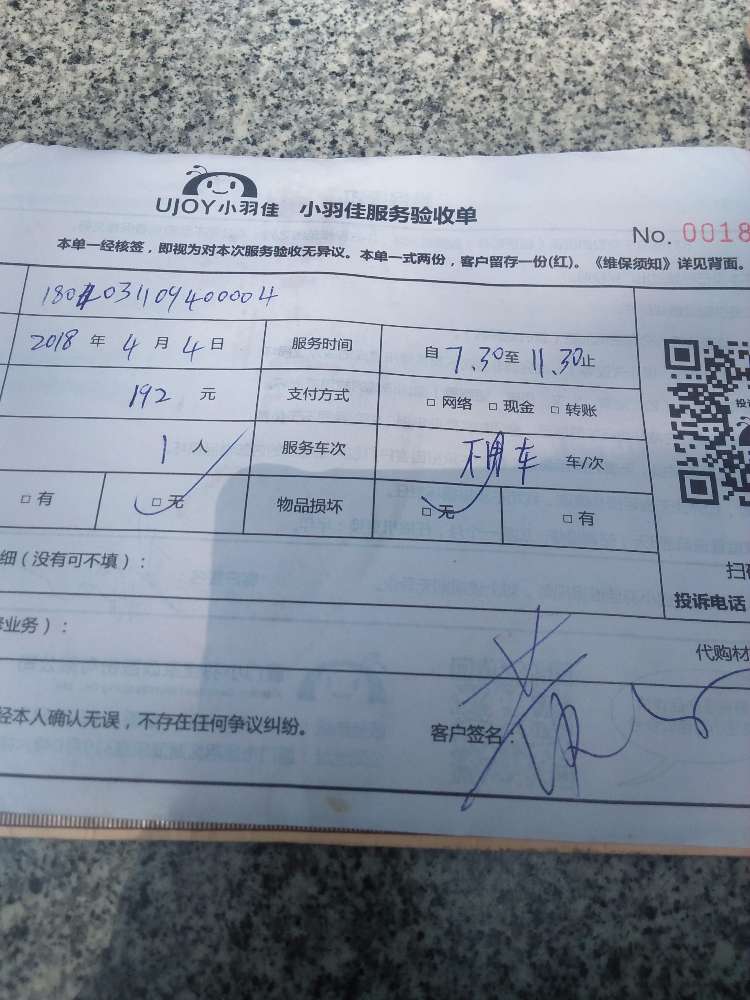 UJOY小羽佳 小羽佳服务验收单
No. 0018
本单一经核签，即视为对本次服务验收无异议。本单一式两份，客户留存一份(红)。《维保须知》详见背面。
2018 年 4 月 4 日 服务时间 自 7.30 至 11.30 止
192 元 支付方式 □ 网络 □ 现金 □ 转账
1 人 服务车次 不用车 车/次
□ 有 □ 无 物品损坏 □ 无 □ 有
细（没有可不填）：
扫
投诉电话
业务）：
代购材
经本人确认无误，不存在任何争议纠纷。 客户签名：